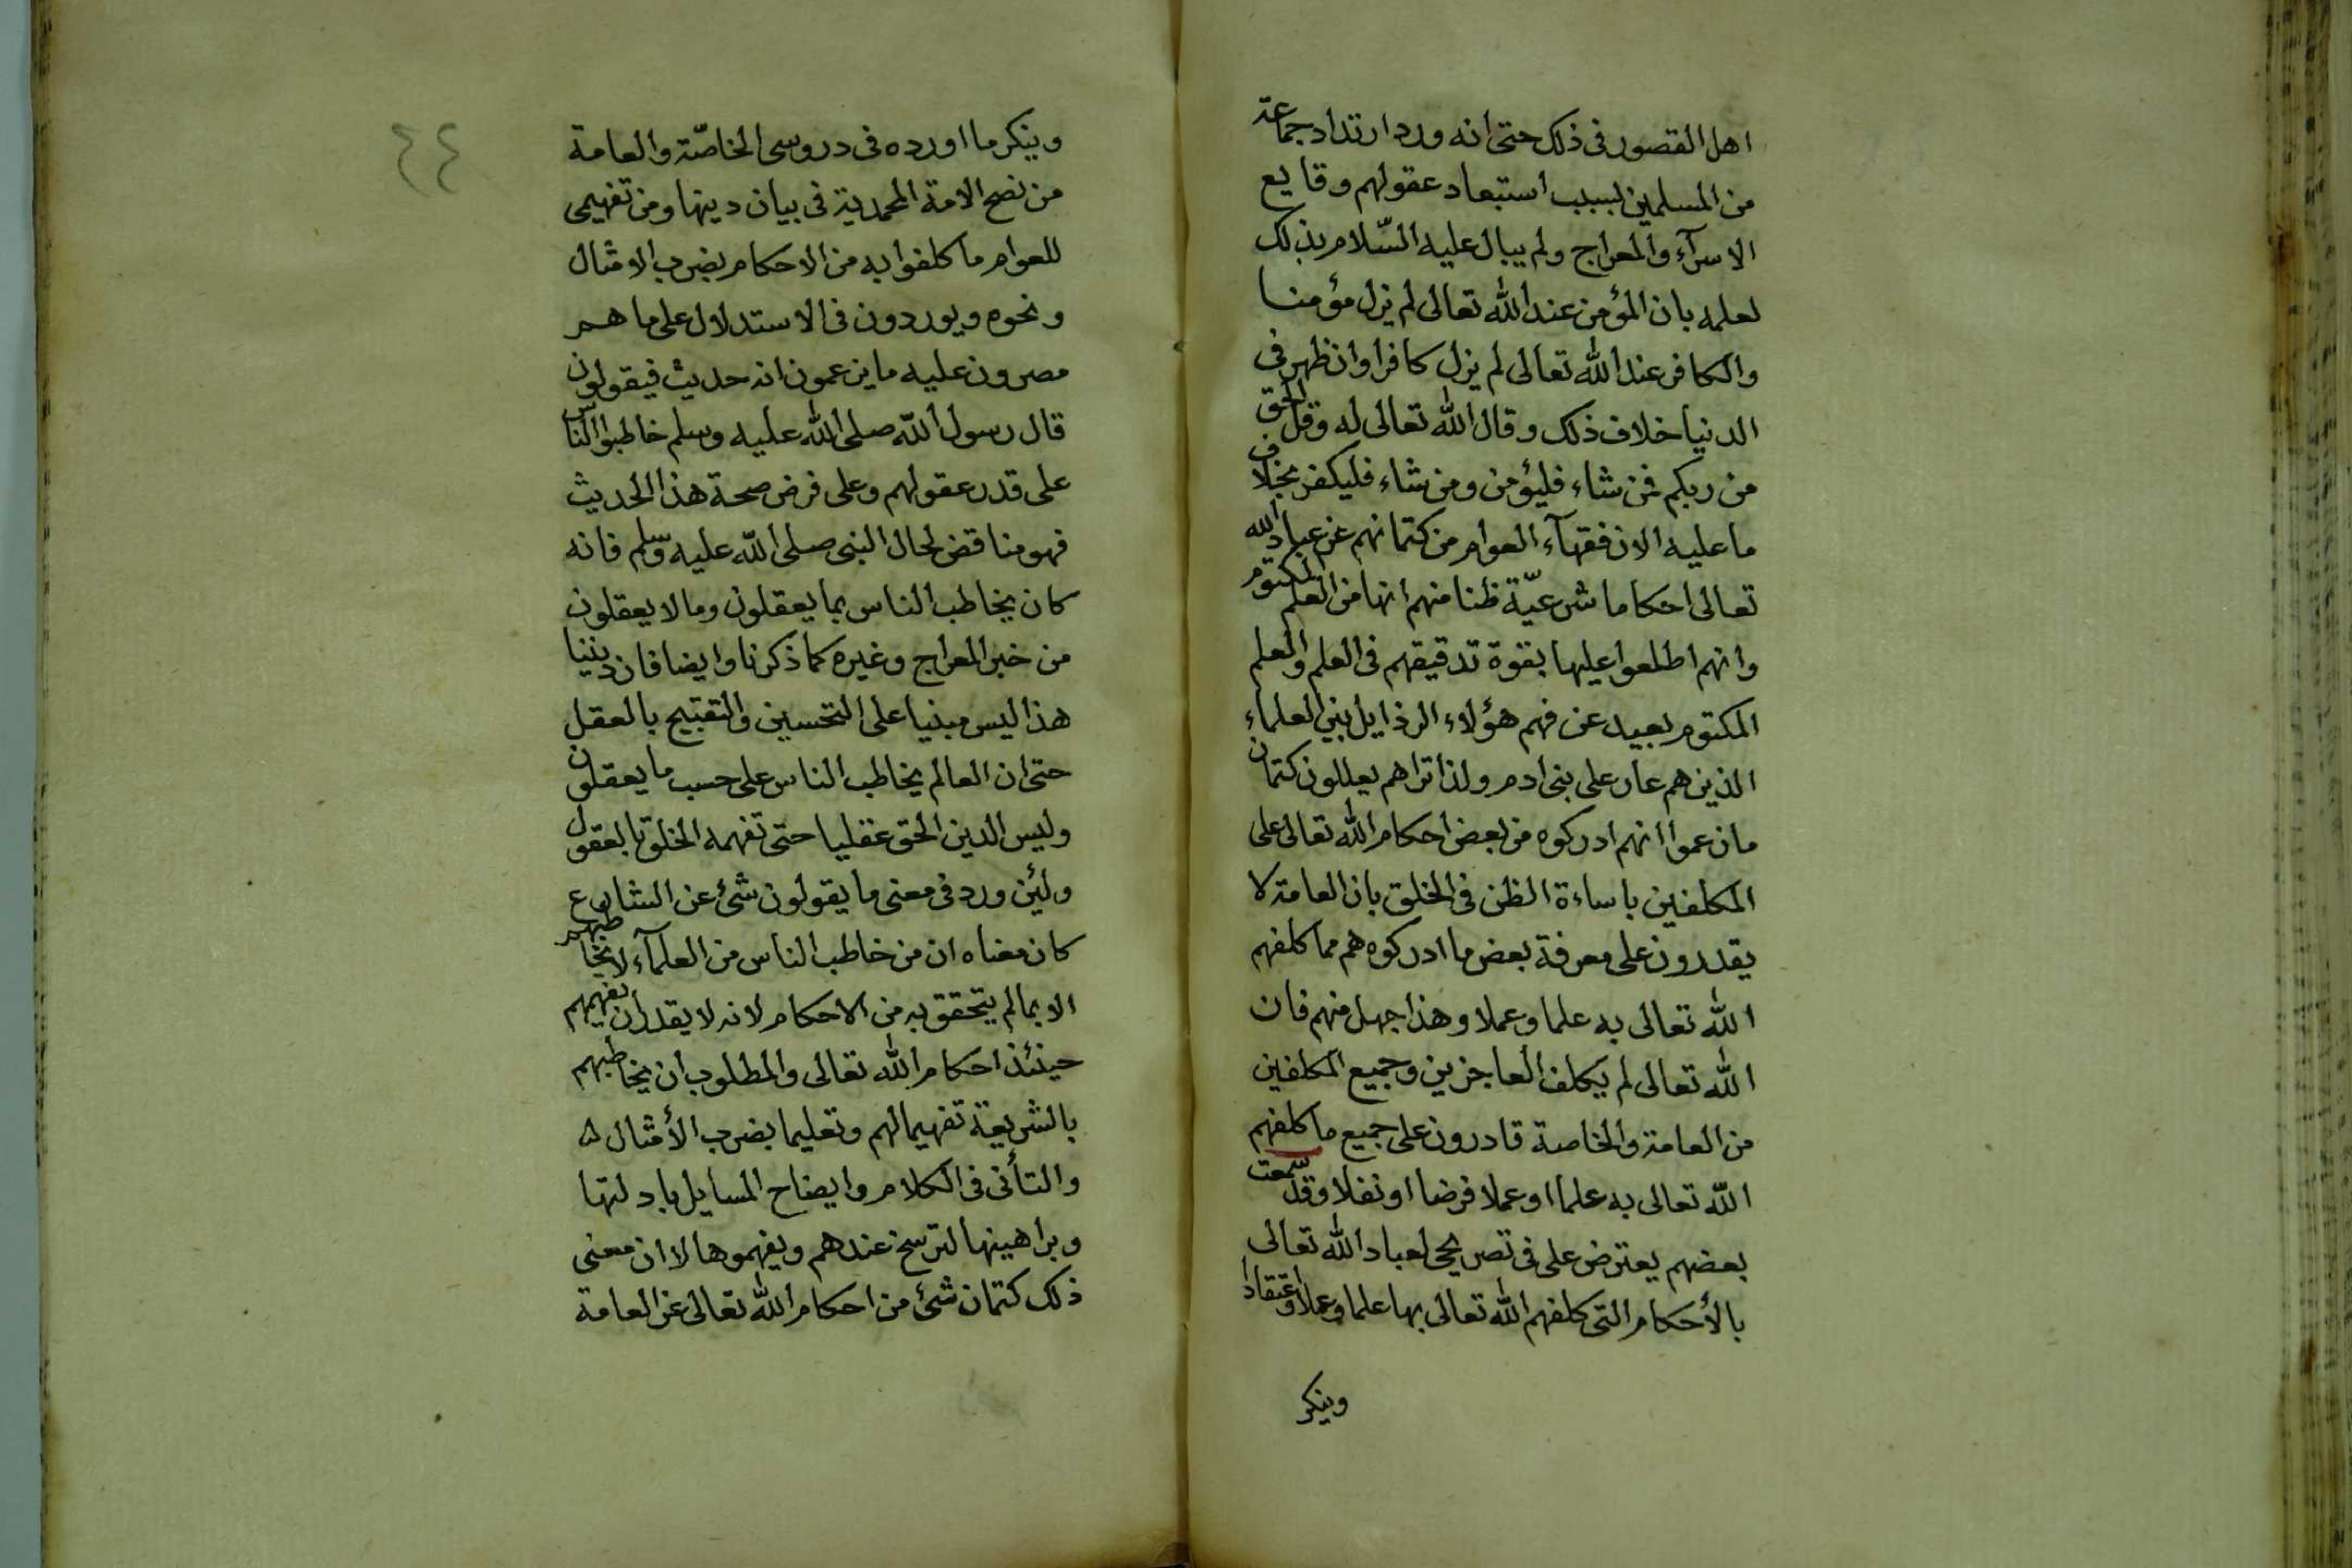 اهل القصور فى ذلك حتى انه ورد ارتداد جماعة
من المسلمين بسبب استبعاد عقولهم وقايع
الاسرآء والمعراج ولم يبال عليه السّلام بذلك
لعلمه بان المؤمن عند الله تعالى لم يزل مؤمنا
والكافر عند الله تعالى لم يزل كافرا وان ظهر فى
الدنيا خلاف ذلك وقال الله تعالى له وقل الحق
من ربكم فمن شاء فليؤمن ومن شاء فليكفر بخلاف
ما عليه الان فقهآء العوام من كتمانهم عن عباد الله
تعالى احكاما شرعيّة ظنا منهم انها من العلم المكتوم
وانهم اطلعوا عليها بقوة تدقيقهم فى العلم والعلم
المكتوم بعيد عن فهم هؤلاء الرذايل بين العلماء
الذين هم عار على بنى ادم ولذا تراهم يعللون كتمان
ما زعموا انهم ادركوه من بعض احكام الله تعالى على
المكلفين باساءة الظن فى الخلق بان العامة لا
يقدرون على معرفة بعض ما ادركوه هم مما كلفهم
الله تعالى به علما وعملا وهذا جهل منهم فان
الله تعالى لم يكلف العاجزين وجميع المكلفين
من العامة والخاصة قادرون على جميع ما كلفهم
الله تعالى به علما او عملا فرضا او نفلا وقد سمعت
بعضهم يعترض على فى تصريحى لعباد الله تعالى
بالأحكام التى كلفهم الله تعالى بها علما وعملا واعتقادا
وينكر
٤٤
وينكر ما اورده فى دروسى الخاصّة والعامة
من نصح الامة المحمدية فى بيان دينها ومن تفهيمى
للعوام ما كلفوا به من الاحكام بضرب الامثال
ونحوه ويوردون فى الاستدلال على ما هم
مصرون عليه ما يزعمون انه حديث فيقولون
قال رسول الله صلى الله عليه وسلم خاطبوا النّاس
على قدر عقولهم وعلى فرض صحة هذا الحديث
فهو مناقض لحال النبى صلى الله عليه وسلم فانه
كان يخاطب الناس بما يعقلون وما لا يعقلون
من خبر المعراج وغيره كما ذكرنا وايضا فان ديننا
هذا ليس مبنيا على التحسين والتقبيح بالعقل
حتى ان العالم يخاطب الناس على حسب ما يعقلون
وليس الدين الحق عقليا حتى تفهمه الخلق بالعقول
ولئن ورد فى معنى ما يقولون شئ عن الشارع
كان معناه ان من خاطب الناس من العلمآء لا يخاطبهم
الا بما لم يتحقق به من الاحكام لانه لا يقدر ان يفهمهم
حينئذ احكام الله تعالى والمطلوب ان يخاطبهم
بالشريعة تفهيما لهم وتعليما بضرب الأمثال
والتأنى فى الكلام وايضاح المسايل بادلتها
وبراهينها لترسخ عندهم ويفهموها لا ان معنى
ذلك كتمان شئ من احكام الله تعالى عن العامة